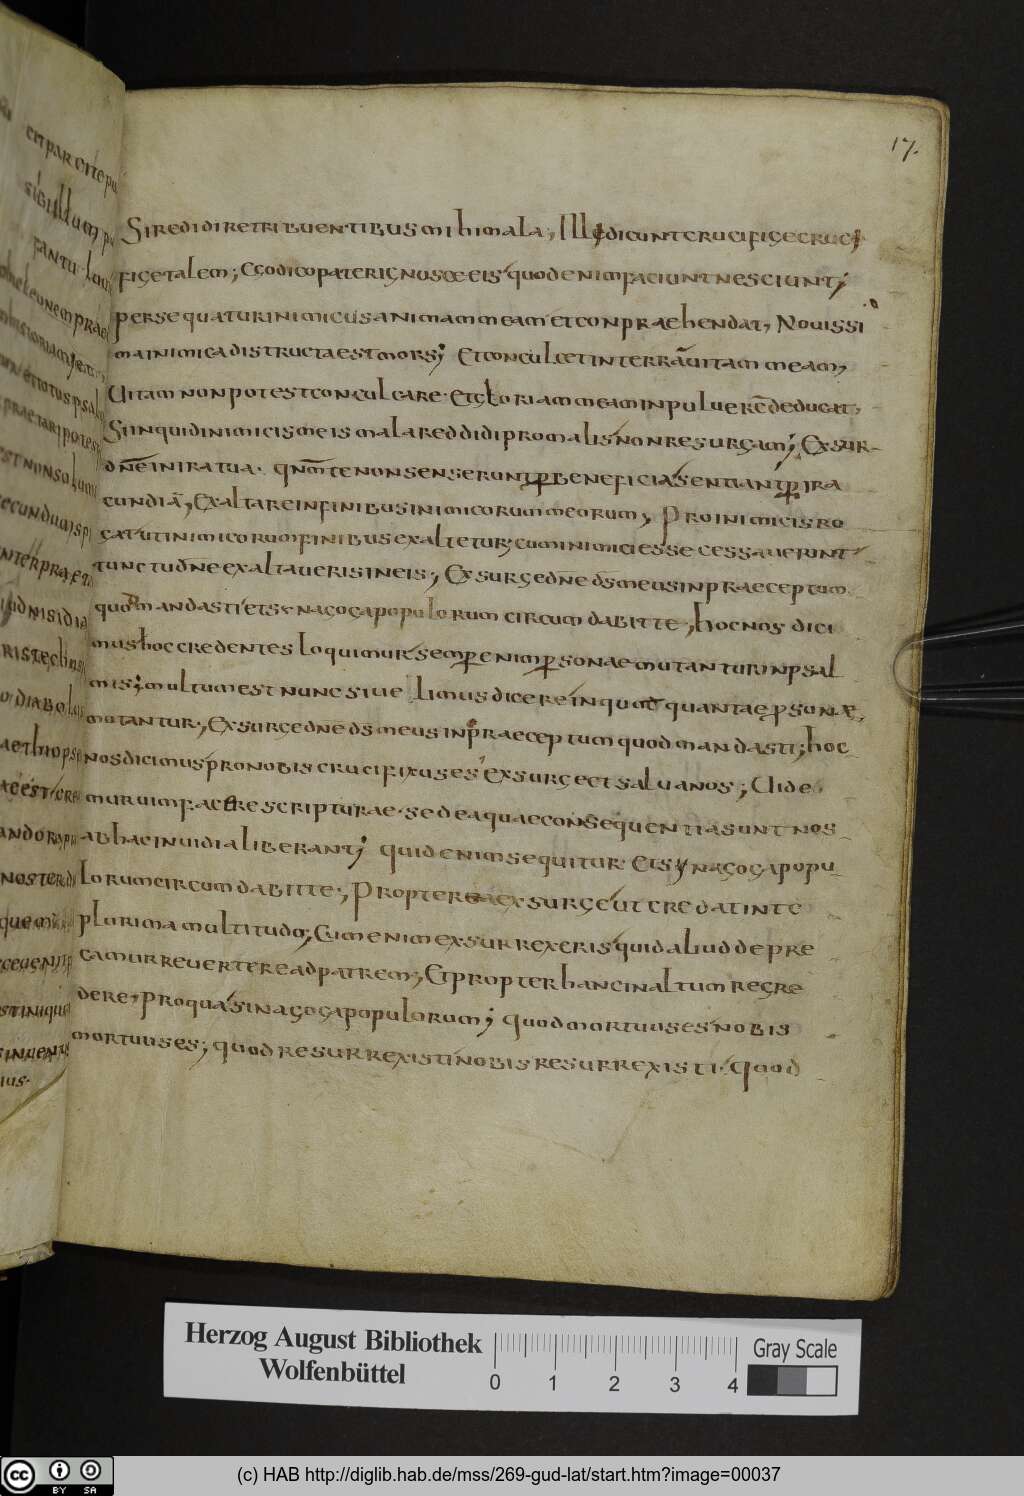 17.
Siredidiretribuentibusmihimala; Illidicuntcrucifigecruci
figetalem; egodicopaterignosceeis quodenimfaciuntnesciunt;
persequaturinimicusanimammeam etconpraehendat, Nouissi
mainimicadistructaestmors; Etconculcetinterrāuitammeam,
Uitamnonpotestconculcare. Etgloriammeaminpuluerēdeducat,
Siinquidinimicismeismalareddidipromalisnonresurgam; Exsur-
dn̄einiratua. qn̄mtenonsenseruntp̱beneficia sentiantp̱ira
cundiā, exaltareinfinibusinimicorummeorum, Proinimicisro
gat utinimicorumfinibusexaltetur; cuminimiciessecessauerint
tunctudn̄eexaltauerisineis; Exsurgedn̄e ds̄meusinpraeceptum
quodmandasti etsynagogapopulorum circumdabitte; hocnosdici
mus hoccredentes loquimur semp̱enimp̱sonaemutanturinpsal
mis; multumestnuncsiue limusdicere inquot quantaep̱sonae
mutantur; exsurgedn̄e ds̄meusinpraeceptumquodmandasti; hoc
nosdicimus pronobiscrucifixuses exsurgeetsaluanos; Uide
muruimfacerescripturae. sedeaquaeconsequentiasunt nos
abhacinuidialiberant; quidenimsequitur. Etsynagogapopu
lorumcircumdabitte; Propterea exsurge utcredatinte
plurimamultitudo; Cumenimexsurrexeris quidaliuddepre
camurreuertereadpatrem; Etpropterhancinaltumregre
dere, proquasinagogapopulorum; quodmortuuses nobis
mortuuses; quodresurrexisti nobisresurrexisti. quod
Herzog August Bibliothek
Wolfenbüttel
0 1 2 3 4
Gray Scale
cc BY SA
(c) HAB http://diglib.hab.de/mss/269-gud-lat/start.htm?image=00037